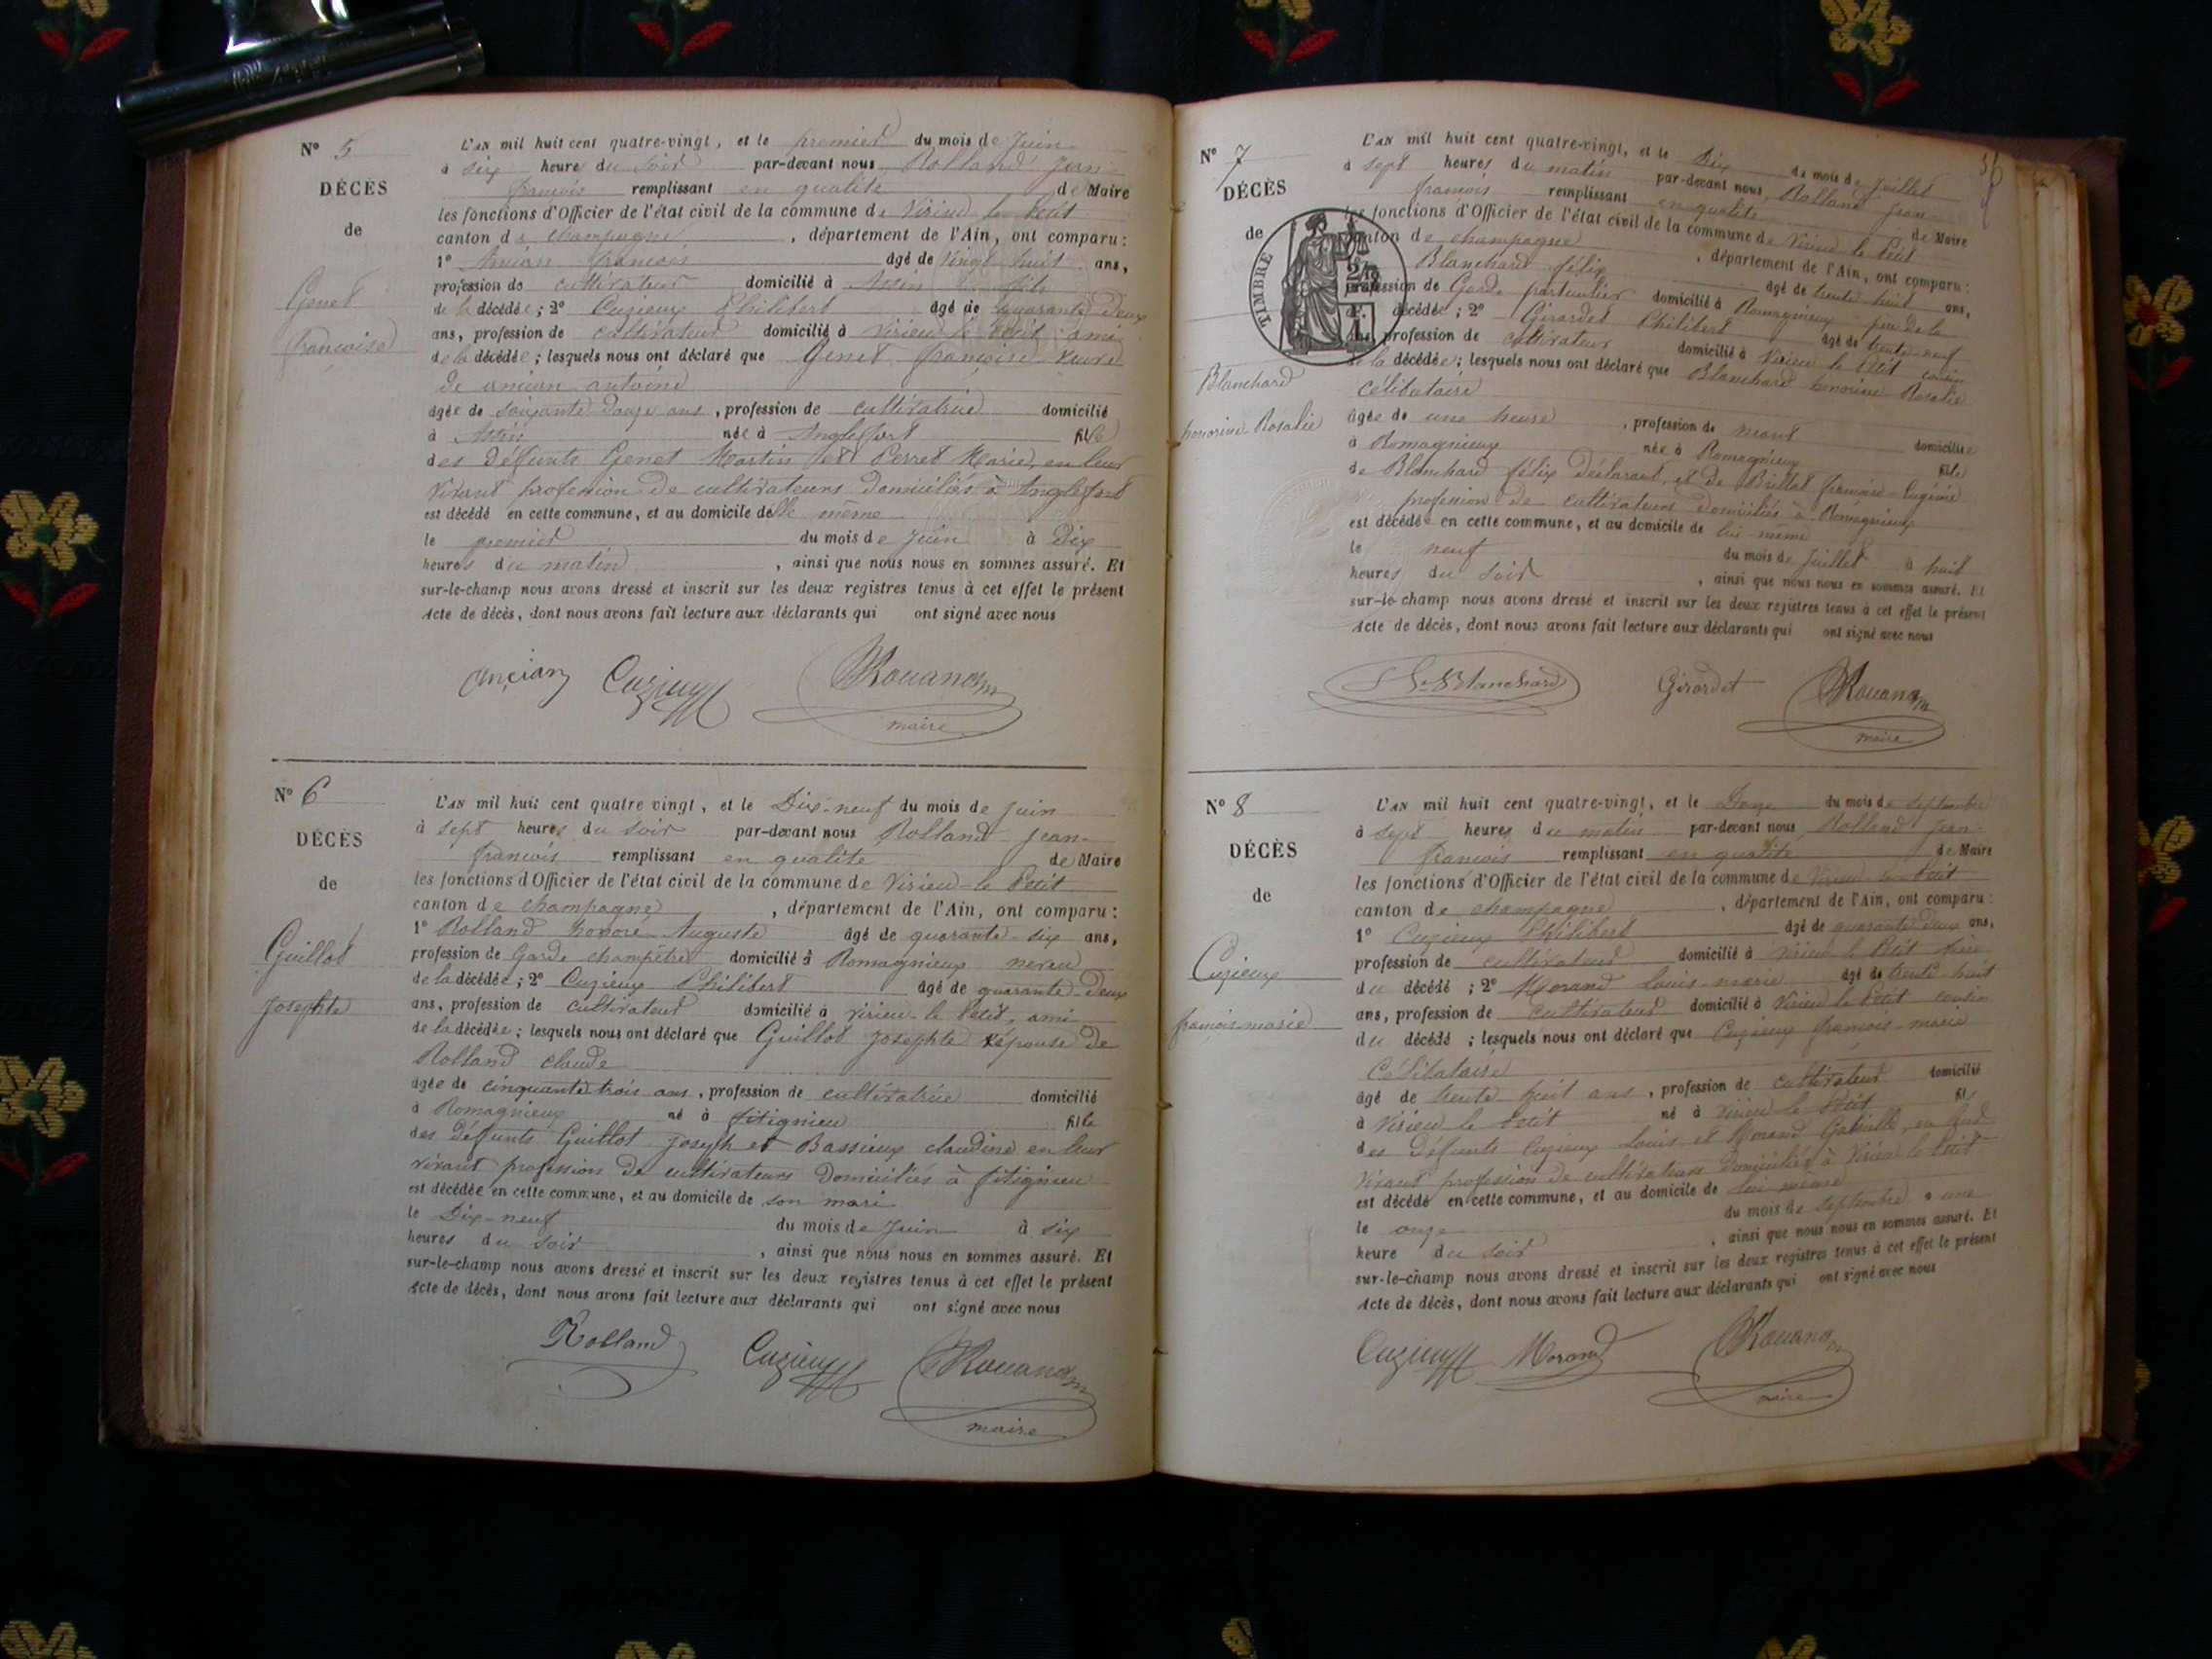 N° 5
DÉCÈS
de
Genet
françoise
L'AN mil huit cent quatre-vingt, et le premier du mois de Juin
à six heure du soir par-devant nous Rolland Jean
françois remplissant en qualité de Maire
les fonctions d'Officier de l'état civil de la commune de Virieu le Petit
canton de champagne, département de l'Ain, ont comparu:
1° Ancian françois âgé de vingt huit ans,
profession de cultivateur domicilié à Assin fils
de la décédée; 2° Cuzieux Philibert âgé de quarante deux
ans, profession de cultivateur domicilié à Virieu le Petit ami
de la décédée; lesquels nous ont déclaré que Genet françoise veuve
de ancian antoine
âgée de soixante douze ans, profession de cultivatrice domicilié
à Assin née à Anglefort fille
des défunts Genet Martin et Perret Marie, en leur
vivant profession de cultivateurs domiciliés à Anglefort
est décédé en cette commune, et au domicile d'elle même
le premier du mois de Juin à Dix
heures du matin, ainsi que nous nous en sommes assuré. Et
sur-le-champ nous avons dressé et inscrit sur les deux registres tenus à cet effet le présent
Acte de décès, dont nous avons fait lecture aux déclarants qui ont signé avec nous
ancian Cuzieux
maire
N° 6
DÉCÈS
de
Guillot
Josephte
L'AN mil huit cent quatre vingt, et le Dix-neuf du mois de Juin
à sept heures du soir par-devant nous Rolland Jean-
françois remplissant en qualité de Maire
les fonctions d'Officier de l'état civil de la commune de Virieu-le Petit
canton de champagne, département de l'Ain, ont comparu:
1° Rolland honoré Auguste âgé de quarante-six ans,
profession de Garde champêtre domicilié à Romagnieux neveu
de la décédée; 2° Cuzieux Philibert âgé de quarante-deux
ans, profession de cultivateur domicilié à Virieu-le Petit, ami
de la décédée; lesquels nous ont déclaré que Guillot Josephte épouse de
Rolland claude
âgée de cinquante trois ans, profession de cultivatrice domicilié
à Romagnieux né à fitignieu fille
des défunts Guillot Joseph et Bassieux claudine en leur
vivant profession de cultivateurs domiciliés à fitignieu
est décédée en cette commune, et au domicile de son mari
le Dix-neuf du mois de Juin à six
heures du soir, ainsi que nous nous en sommes assuré. Et
sur-le-champ nous avons dressé et inscrit sur les deux registres tenus à cet effet le présent
Acte de décès, dont nous avons fait lecture aux déclarants qui ont signé avec nous
Rolland Cuzieux
maire
36
N° 7
DÉCÈS
de
TIMBRE
Blanchard
honorine-Rosalie
L'AN mil huit cent quatre-vingt, et le Dix du mois de Juillet
à sept heures du matin par-devant nous Rolland Jean
françois remplissant en qualité de Maire
les fonctions d'Officier de l'état civil de la commune de Virieu le Petit
canton de champagne, département de l'Ain, ont comparu:
Blanchard félix âgé de trente huit ans,
profession de Garde particulier domicilié à Romagnieux père de la
décédée; 2° Girardet Philibert âgé de trente-neuf
ans, profession de cultivateur domicilié à Virieu le Petit cousin
de la décédée; lesquels nous ont déclaré que Blanchard honorine Rosalie
célibataire
âgée de une heure, profession de néant domiciliée
à Romagnieux née à Romagnieux fille
de Blanchard félix déclarant, et de Brillat françoise-Eugénie
profession de cultivateurs domiciliés à Romagnieux
est décédée en cette commune, et au domicile de lui même
le neuf du mois de Juillet à huit
heures du soir, ainsi que nous nous en sommes assuré. Et
sur-le-champ nous avons dressé et inscrit sur les deux registres tenus à cet effet le présent
Acte de décès, dont nous avons fait lecture aux déclarants qui ont signé avec nous
Blanchard Girardet
maire
N° 8
DÉCÈS
de
Cuzieux
françois-marie
L'AN mil huit cent quatre-vingt, et le Douze du mois de septembre
à sept heures du matin par-devant nous Rolland Jean
françois remplissant en qualité de Maire
les fonctions d'Officier de l'état civil de la commune de Virieu le Petit
canton de champagne, département de l'Ain, ont comparu:
1° Cuzieux Philibert âgé de quarante deux ans,
profession de cultivateur domicilié à Virieu le Petit frère
du décédé; 2° Morand Louis-marie âgé de trente-huit
ans, profession de cultivateur domicilié à Virieu le Petit cousin
du décédé; lesquels nous ont déclaré que Cuzieux françois-marie
Célibataire
âgé de trente huit ans, profession de cultivateur domicilié
à Virieu le Petit né à Virieu le Petit fils
des défunts Cuzieux Louis et Morand Gabrielle, en leur
vivant profession de cultivateurs domiciliés à Virieu le Petit
est décédé en cette commune, et au domicile de lui même
le onze du mois de septembre à une
heure du soir, ainsi que nous nous en sommes assuré. Et
sur-le-champ nous avons dressé et inscrit sur les deux registres tenus à cet effet le présent
Acte de décès, dont nous avons fait lecture aux déclarants qui ont signé avec nous
Cuzieux Morand
maire